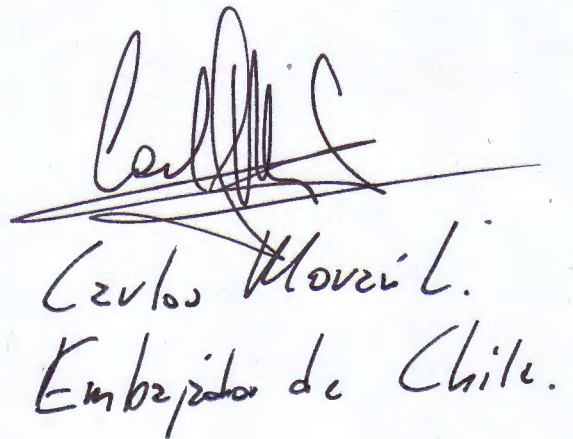 Carlos Morán L.
Embajador de Chile.